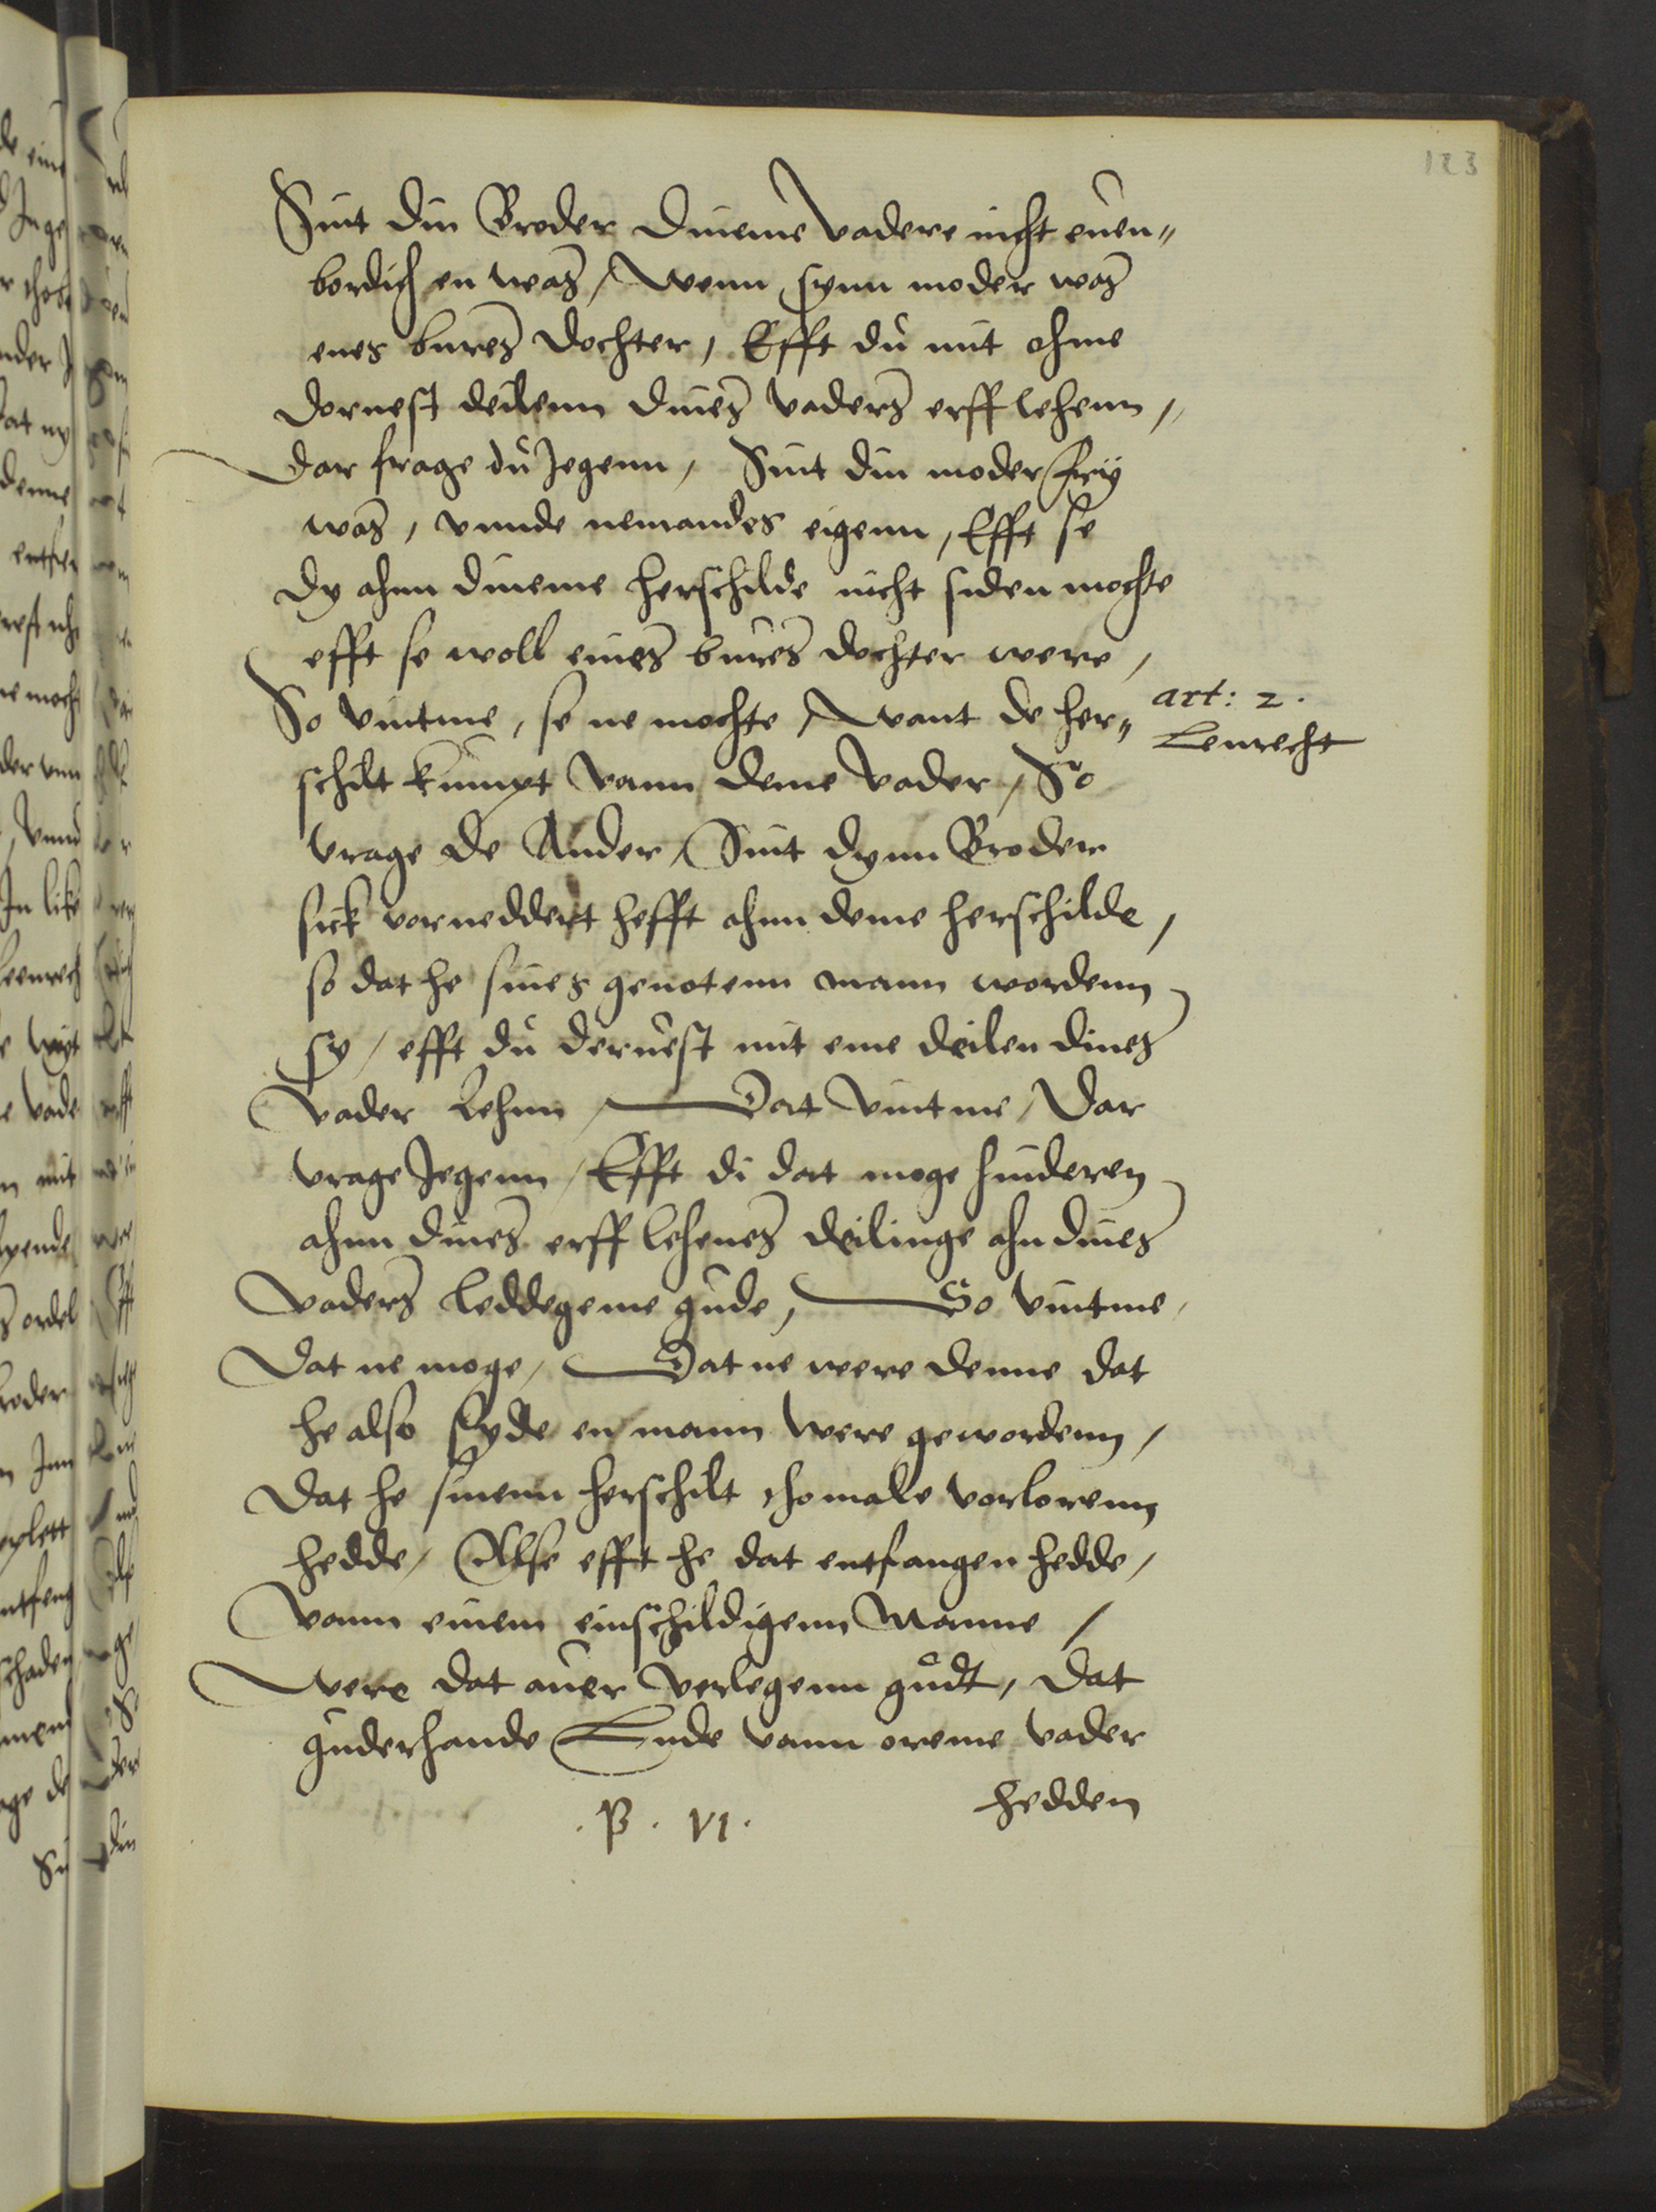 123
Sint din Broder dineme vadere nicht euen„
bordich en was, / wenn synn moder was
enes bures dochter, Efft du mit ohme
doruest deilenn dines vaders erfflehenn,
dar frage du Jegenn, Sint din moder fry
was, vnnde nemandes eigenn, Efft se
dy ahnn dineme herschilde nicht siden mochte
efft se woll eines bures dochter were,
So vintme, se ne mochte, / want de her„
art: 2.
Lenrecht
schilt kumpt vann deme vader, / So
vrage de Ander, / Sint dynn Broder
sick vorneddert hefft ahnn deme herschilde,
so dat he sines genotenn mann wordenn
sy, / efft du deruest mit eme deilen dines
vader Lehnn, Dat vintme, / dar
vrage Jegenn, / Efft di dat moge hinderen
ahnn dines erfflehenes deilinge ahn dines
vaders leddegeme gude, So vintme,
dat ne moge, Dat ne were denne dat
he also syde en mann were gewordenn,
dat he sinenn herschilt thomale vorlorenn
hedde, / Alse efft he dat entfangen hedde,
vann einem einschildigenn Manne /
were dat auer verlegenn gudt, dat
guderhande Lude vann oreme vader
hedden
. P . VI .